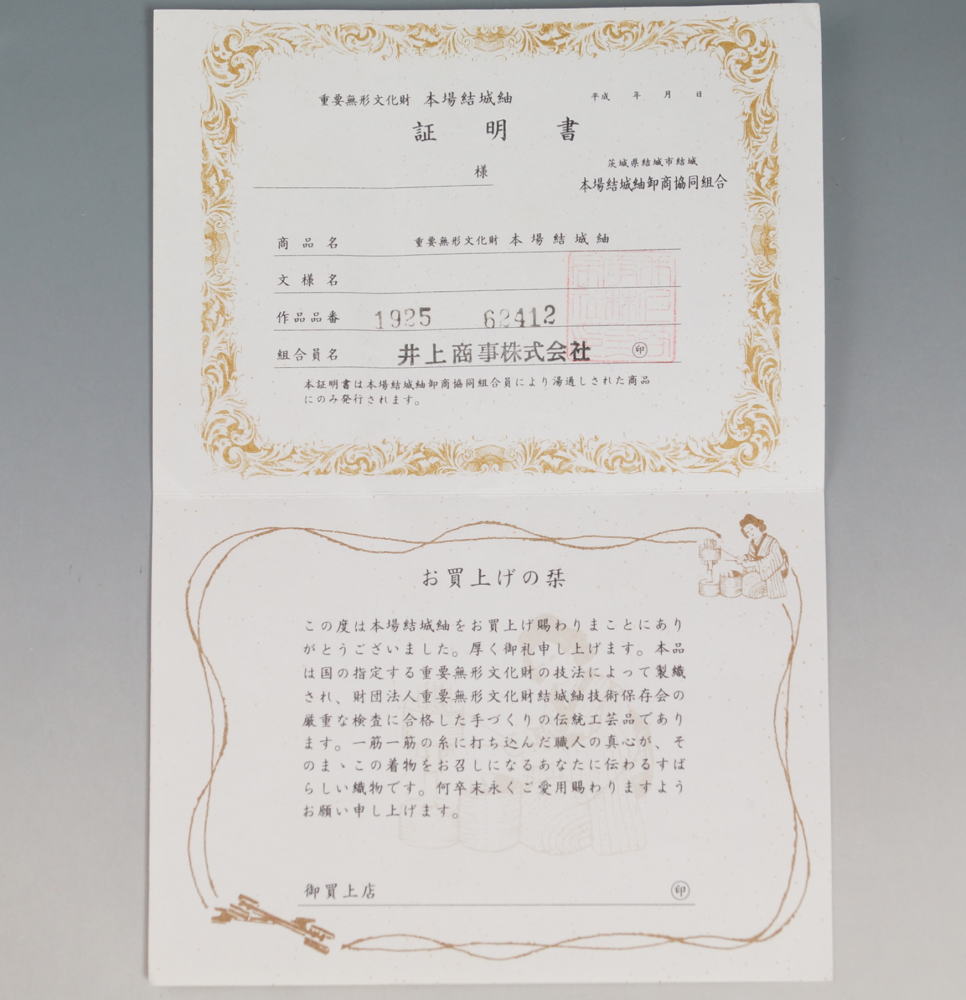 重要無形文化財 本場結城紬
平成 年 月 日
証明書
様
茨城県結城市結城
本場結城紬卸商協同組合
商品名 重要無形文化財 本場結城紬
文様名
作品品番 1925 62412
組合員名 井上商事株式会社 印
本証明書は本場結城紬卸商協同組合員により湯通しされた商品
にのみ発行されます。
お買上げの栞
この度は本場結城紬をお買上げ賜わりまことにあり
がとうございました。厚く御礼申し上げます。本品
は国の指定する重要無形文化財の技法によって製織
され、財団法人重要無形文化財結城紬技術保存会の
厳重な検査に合格した手づくりの伝統工芸品であり
ます。一筋一筋の糸に打ち込んだ職人の真心が、そ
のまゝこの着物をお召しになるあなたに伝わるすば
らしい織物です。何卒末永くご愛用賜わりますよう
お願い申し上げます。
御買上店 印